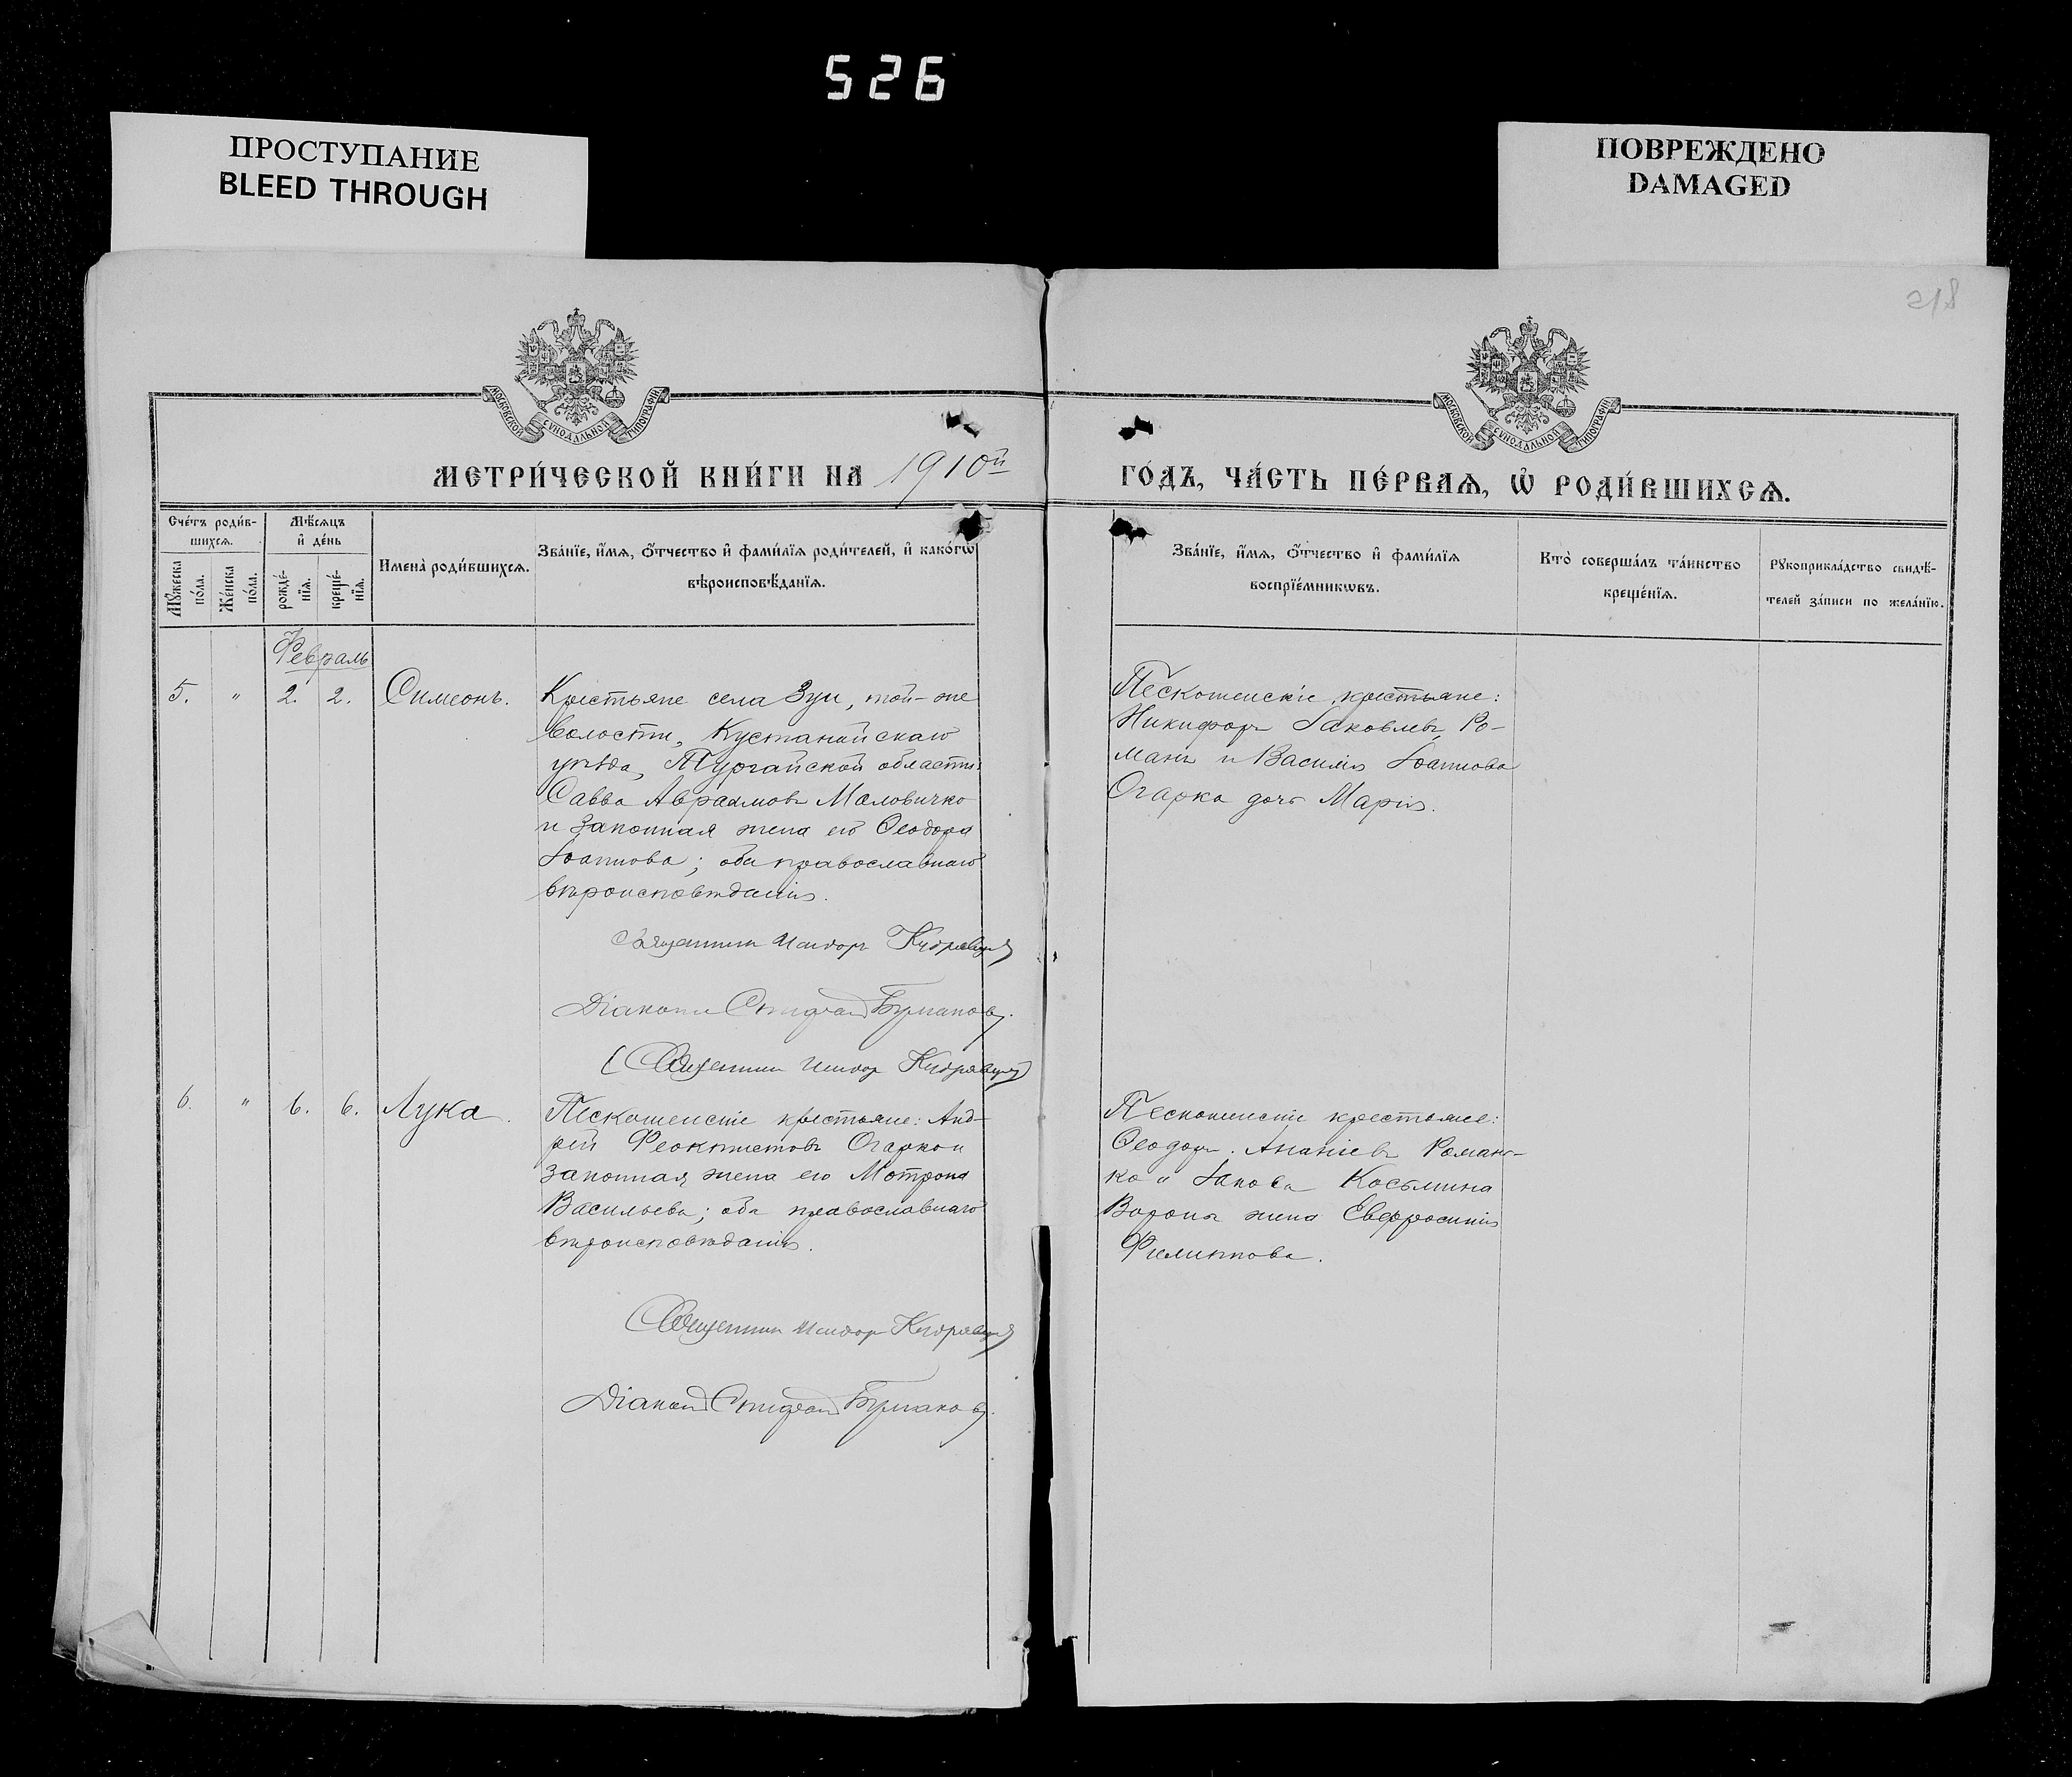 526
ПРОСТУПАНИЕ
BLEED THROUGH
ПОВРЕЖДЕНО
DAMAGED
218
МОСКОВСКОЙ СѴНОДАЛЬНОЙ ТИПОГРАФІИ
МОСКОВСКОЙ СѴНОДАЛЬНОЙ ТИПОГРАФІИ
МЕТРИ́ЧЕСКОЙ КНИ́ГИ НА 1910й
ГО́ДЪ, ЧА́СТЬ ПЕ́РВАѦ, Ѡ҆ РОДИ́ВШИХСѦ.
Сче́тъ роди́в-
шихсѧ.
Мꙋ́жеска по́ла.
Же́нска по́ла.
Мѣ́сѧцъ
и҆ де́нь
рожде́-
нїѧ.
креще́-
нїѧ.
Имена̀ роди́вшихсѧ.
Зва́нїе, и҆́мѧ, ѻ҆́тчество и҆ фами́лїѧ роди́телей, и҆ како́гѡ
вѣроисповѣ́данїѧ.
Зва́нїе, и҆́мѧ, ѻ҆́тчество и҆ фами́лїѧ
воспрїе́мникѡвъ.
Кто̀ соверша́лъ та́инство
креще́нїѧ.
Рꙋкоприкла́дство свидѣ́-
телей за́писи по жела́нїю.
Февраль
5. " 2. 2. Симеонъ.
Крестьяне села Зуи, той-же
волости, Кустанайскаго
уѣзда, Тургайской области:
Савва Авраамовъ Маловичко
и законная жена его Ѳеодора
Іоаннова; оба православнаго
вѣроисповѣданія.
Священникъ Исидоръ Кудрявцевъ
Діаконъ Стефанъ
Священникъ Исидоръ Кудрявцевъ
Крестьяне:
Никифоръ Іаковлевъ Ро-
манъ и Василія Іоаннова
Огарка дочь Марія.
6. " 6. 6. Лука.
крестьяне: Анд-
рей Феоктистовъ Огарко и
законная жена его Мотрона
Васильева; оба православнаго
вѣроисповѣданія.
Священникъ Исидоръ Кудрявцевъ
Діаконъ Стефанъ
крестьяне:
Ѳеодоръ Ананіевъ Роман-
ко и Іакова Косьмина
Ворона жена Евфросинія
Филиппова.